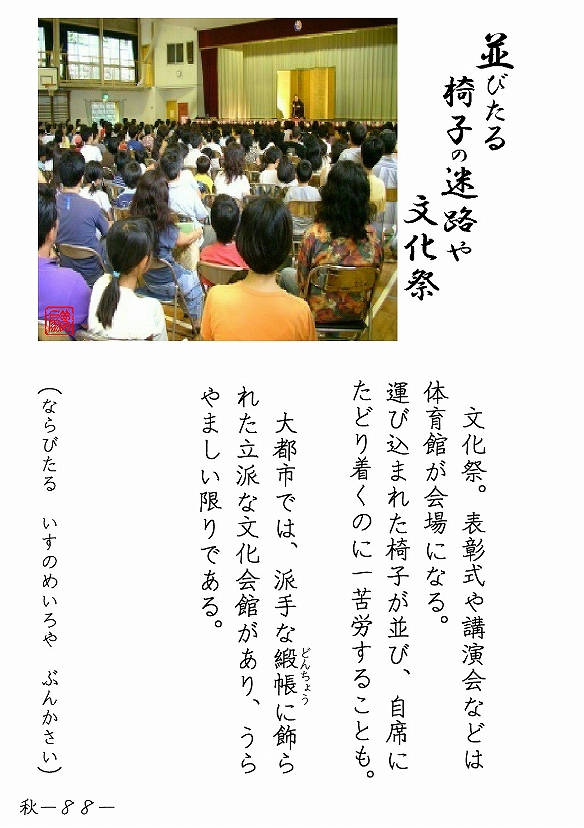 並びたる
椅子の迷路や
文化祭
文化祭。表彰式や講演会などは
体育館が会場になる。
運び込まれた椅子が並び、自席に
たどり着くのに一苦労することも。
大都市では、派手な緞帳に飾ら
どんちょう
れた立派な文化会館があり、うら
やましい限りである。
(ならびたる いすのめいろや ぶんかさい)
秋－８８－